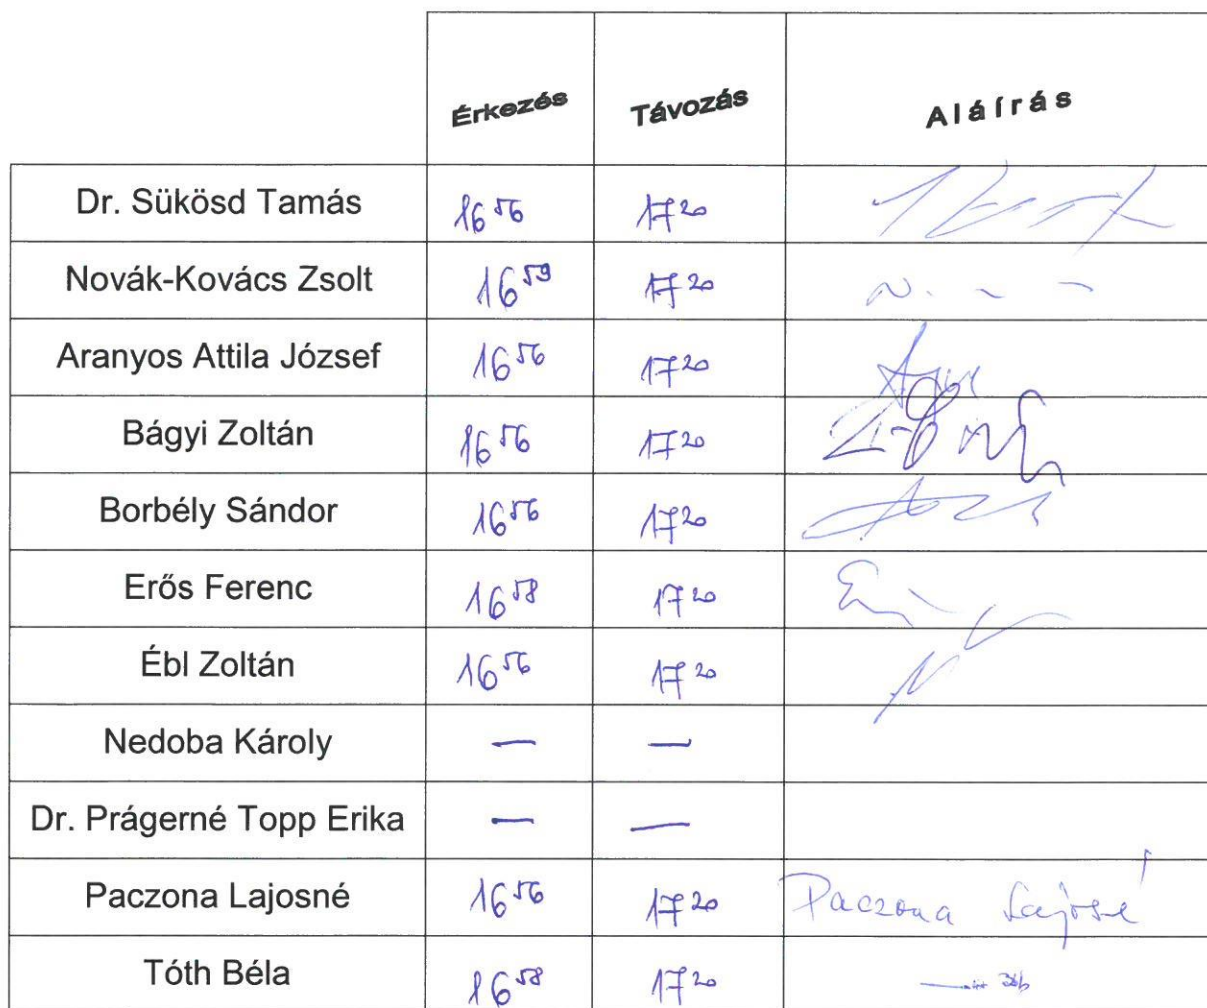 Érkezés Távozás Aláírás
Dr. Sükösd Tamás 16 56 17 20
Novák-Kovács Zsolt 16 59 17 20
Aranyos Attila József 16 56 17 20
Bágyi Zoltán 16 56 17 20
Borbély Sándor 16 56 17 20
Erős Ferenc 16 58 17 20
Ébl Zoltán 16 56 17 20
Nedoba Károly — —
Dr. Prágerné Topp Erika — —
Paczona Lajosné 16 56 17 20 Paczona Lajosné
Tóth Béla 16 58 17 20